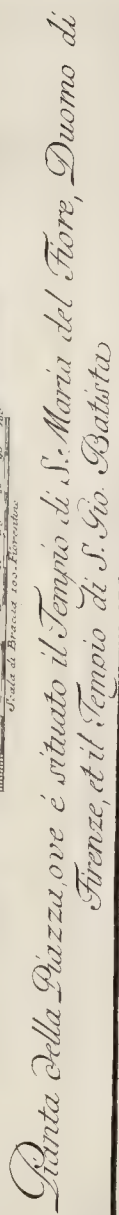 Scala di Bracia 100. Fiorentine
Pianta della Piazza, ove é situato il Tempio di S. Maria del Fiore, Duomo di
Firenze, et il Tempio di S. Gio. Batista